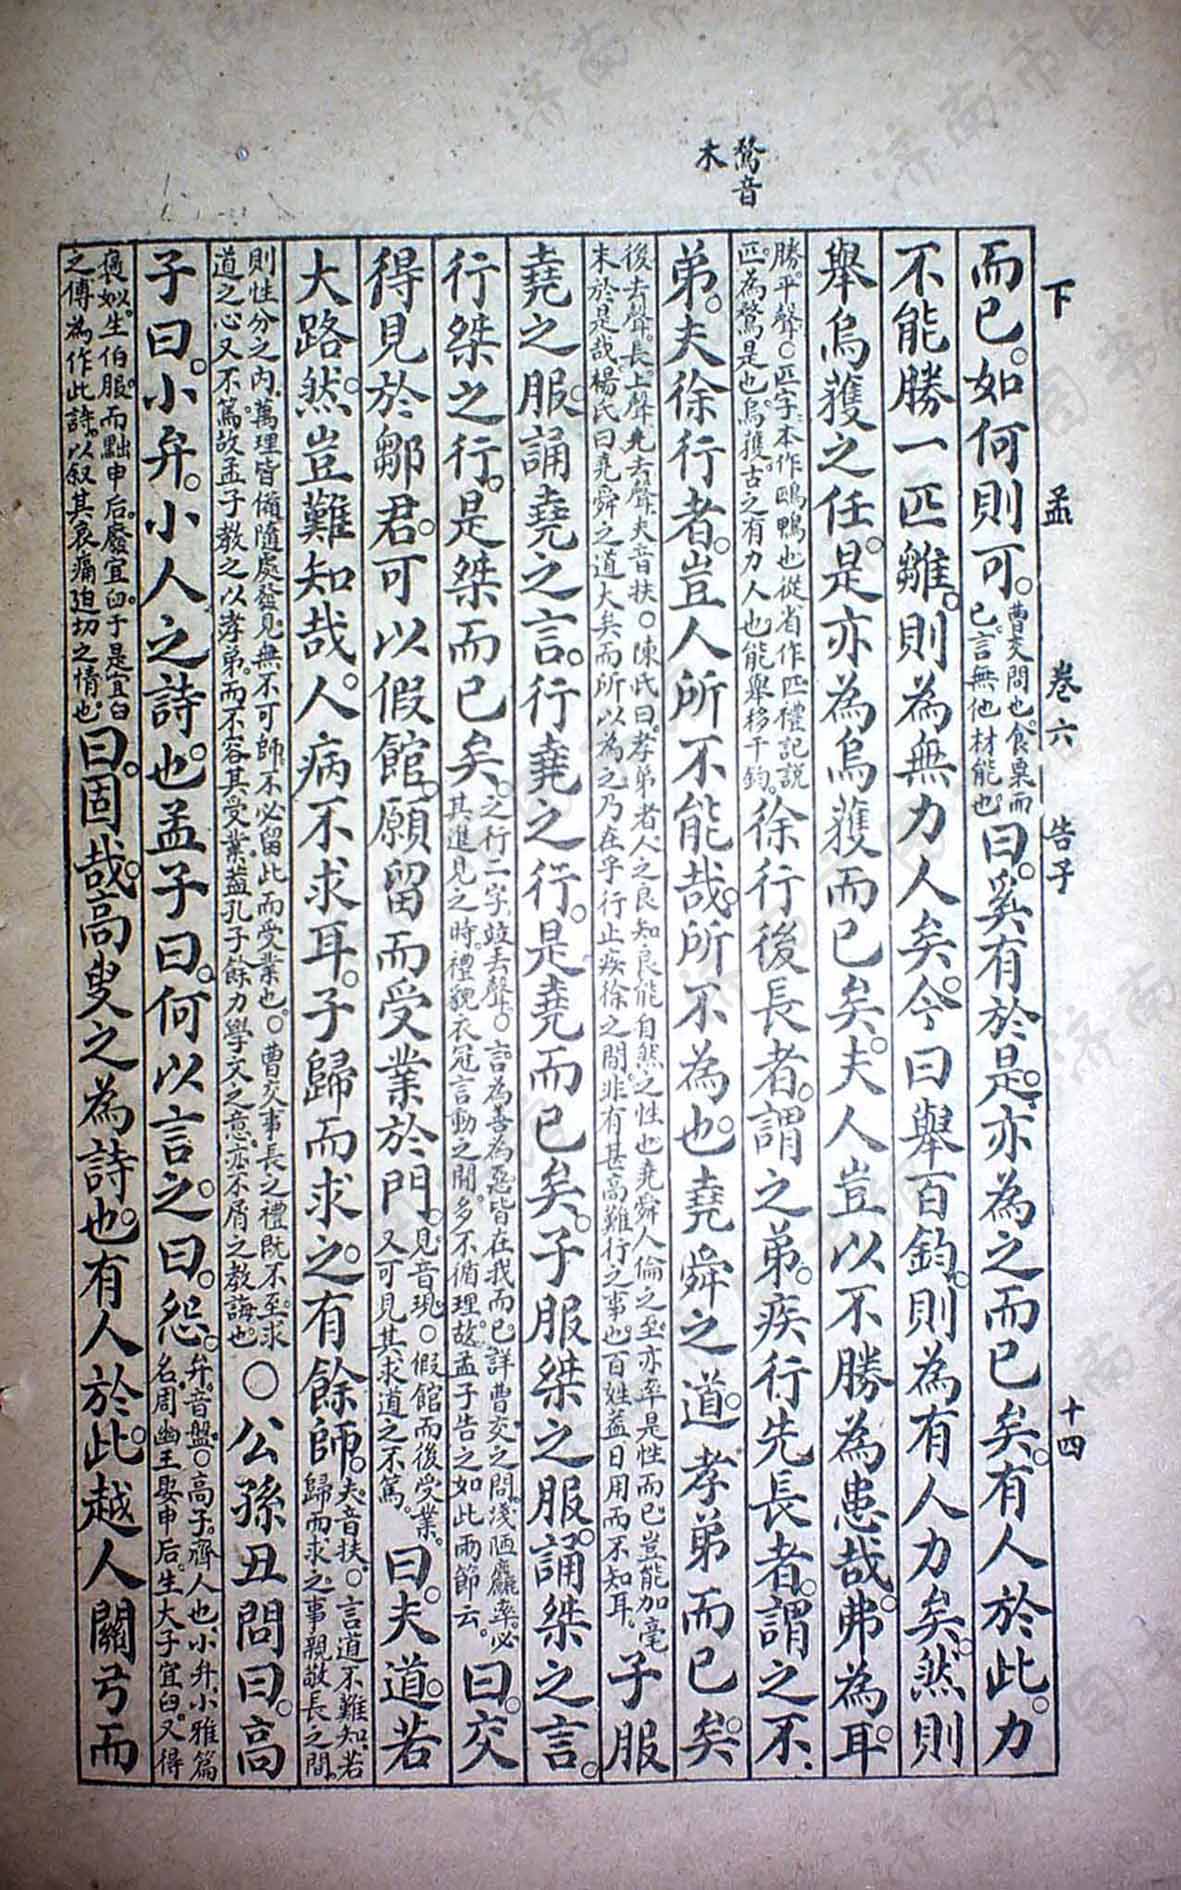 鶩音
木
下　孟　卷六　告子　十四
而已。如何則可。曹交問也。食粟而已。言無他材能也。曰。奚有於是。亦為之而已矣。有人於此。力
不能勝一匹雛。則為無力人矣。今曰舉百鈞。則為有力人矣。然則
舉烏獲之任。是亦為烏獲而已矣。夫人豈以不勝為患哉。弗為耳。
勝。平聲。○匹字。本作鴄。鴨也。從省作匹。禮記說匹。為鶩是也。烏獲。古之有力人也。能舉移千鈞。徐行後長者。謂之弟。疾行先長者。謂之不
弟。夫徐行者。豈人所不能哉。所不為也。堯舜之道。孝弟而已矣。
後去聲。長。上聲。先去聲。夫音扶。○陳氏曰。孝弟者。人之良知良能。自然之性也。堯舜人倫之至。亦率是性而已。豈能加毫末於是哉。楊氏曰。堯舜之道大矣。而所以為之。乃在乎行止疾徐之間。非有甚高難行之事也。百姓蓋日用而不知耳。子服
堯之服。誦堯之言。行堯之行。是堯而已矣。子服桀之服。誦桀之言。
行桀之行。是桀而已矣。之行二字。並去聲。○言為善為惡。皆在我而已。詳曹交之問。淺陋麤率。必其進見之時。禮貌衣冠言動之間。多不循理。故孟子告之如此兩節云。曰。交
得見於鄒君。可以假館。願留而受業於門。見。音現。○假館而後受業。又可見其求道之不篤。曰。夫道。若
大路然。豈難知哉。人病不求耳。子歸而求之。有餘師。夫。音扶。○言道不難知。若歸而求之事親敬長之間。
則性分之內。萬理皆備。隨處發見。無不可師。不必留此而受業也。○曹交事長之禮既不至。求道之心又不篤。故孟子教之以孝弟。而不容其受業。蓋孔子餘力學文之意。亦不屑之教誨也。○公孫丑問曰。高
子曰。小弁。小人之詩也。孟子曰。何以言之。曰。怨。弁。音盤。○高子。齊人也。小弁。小雅篇名。周幽王娶申后。生太子宜臼。又得
褒姒。生伯服。而黜申后。廢宜臼。于是宜臼之傅。為作此詩。以叙其哀痛迫切之情也。曰。固哉。高叟之為詩也。有人於此。越人關弓而